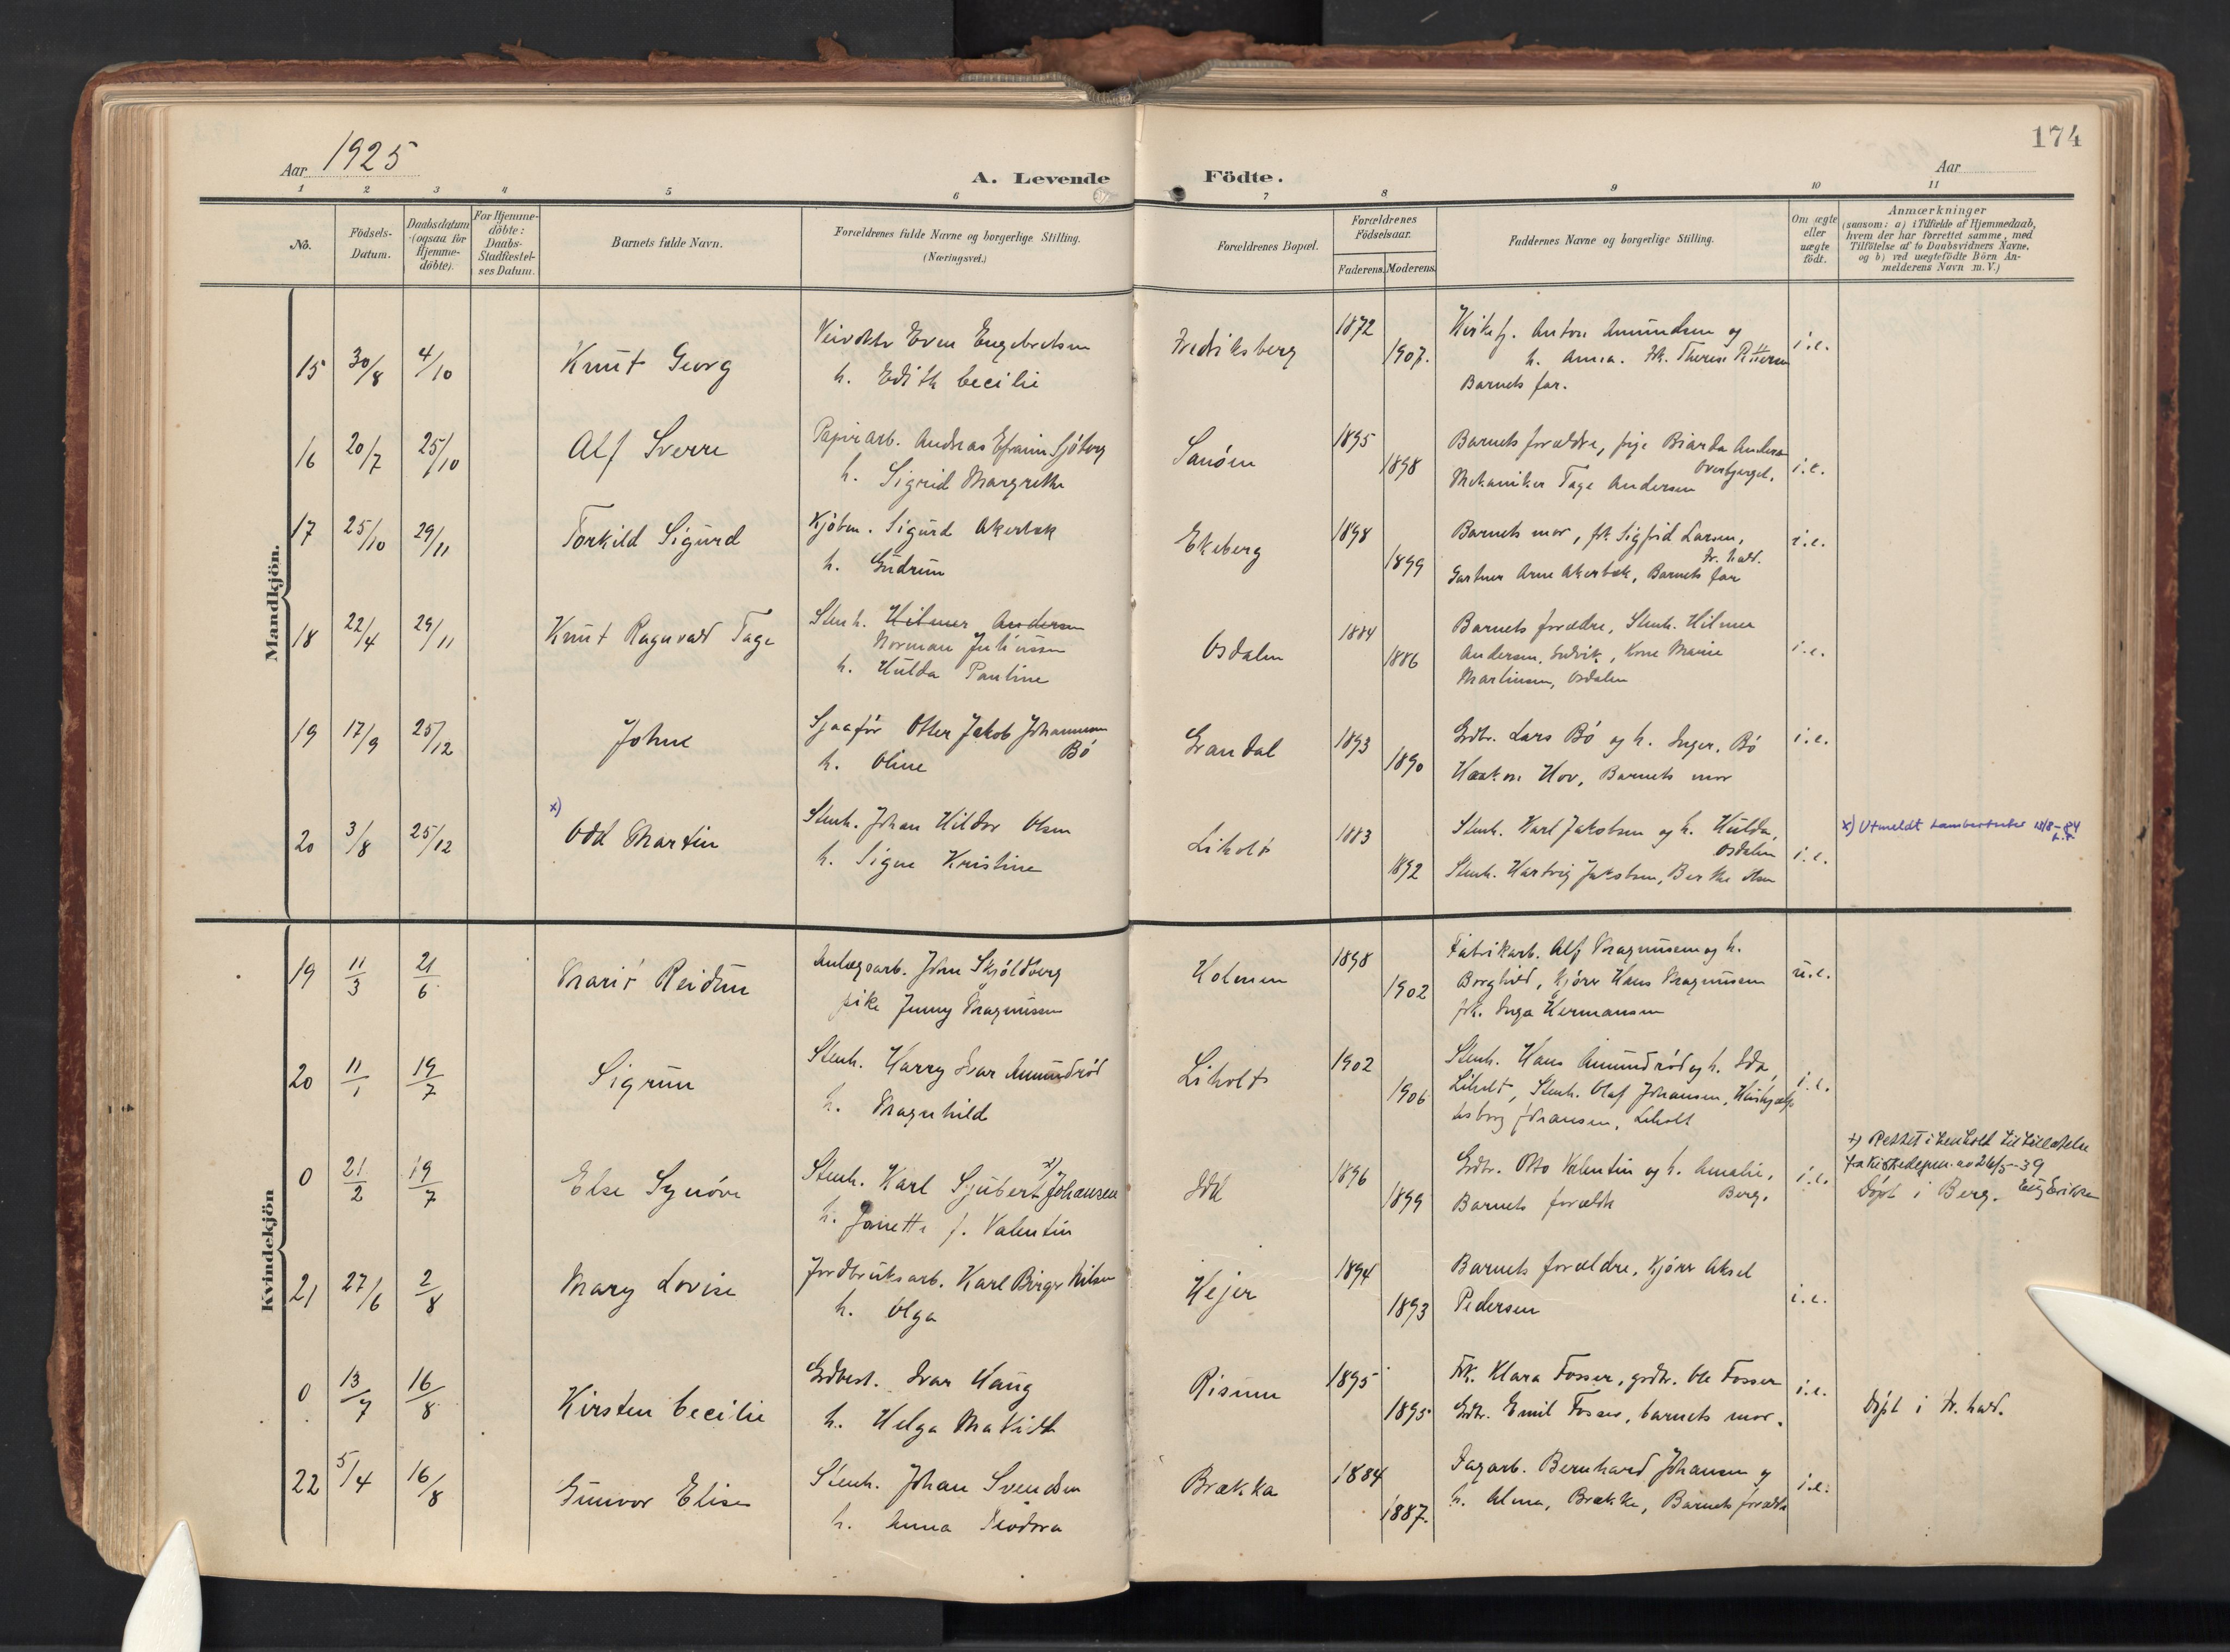 174
Aar 1925
A. Levende Födte.
Aar
1 2 3 4 5 6 7 8 9 10 11
No.
Födsels-
Datum.
Daabsdatum
(ogsaa for
Hjemme-
döbte).
For Hjemme-
döbte:
Daabs-
Stadfæstel-
ses Datum.
Barnets fulde Navn.
Forældrenes fulde Navne og borgerlige Stilling.
(Næringsvei.)
Forældrenes Bopæl.
Forældrenes
Födselsaar.
Faderens. Moderens.
Faddernes Navne og borgerlige Stilling.
Om ægte
eller
uægte
födt.
Anmærkninger
(saasom: a) i Tilfælde af Hjemmedaab,
hvem der har forrettet samme, med
Tilföielse af to Daabsvidners Navne,
og b) ved uægtefödte Börn An-
melderens Navn m. V.)
Mandkjön.
15 30/8 4/10 Knut Georg
Even Engebretsen
h. Edith Cecilie
Fredriksberg 1872 1907.
Anton Amundsen og
h. Anna. Frk. Therese
Barnets far.
i.e.
16 20/7 25/10 Alf Sverre
Papirarb. Andreas Efraim Sjöberg
h. Sigrid Margrethe
1895 1898
Barnets forældre, pige
Mekaniker Tage Andersen
i.e.
17 25/10 29/11 Torkild Sigurd
Kjöbm. Sigurd Akerbæk
h. Gudrun
Ekeberg 1898 1899
Barnets mor, frk. Sigfrid Larsen,
Fr. hald.
Gartner Arne Akerbæk, Barnets far
i.e.
18 22/4 29/11 Knut Ragnvald Tage
Stenh. Hilmer Andersen
Norman Juliussen
h. Hulda Pauline
Osdalen 1884 1886
Barnets forældre, Stenh. Hilmer
Andersen, Kone Marie
Martinsen, Osdalen
i.e.
19 17/9 25/12 Johne
Otter Jakob Johannesen
Bö
h. Oline
Grandal 1893 1890
Grdbr. Lars Bö og h. Inger, Bö
Haakon Hov, Barnets mor
i.e.
20 3/8 25/12 x) Odd Martin
Stenh. Johan Hildor Olsen
h. Signe Kristine
Liholt 1883 1892
Stenh. Karl Jakobsen og h. Hulda,
Osdalen
Stenh. Hartvig Jakobsen, Berthe Olsen
i.e.
x) Utmeldt
Kvindekjön
19 11/3 21/6 Marit Reidun
Anlægsarb. John Skjöldberg
pike Jenny Magnussen
Holmen 1898 1902
Fabrikarb. Alf Magnussen og h.
Borghild, kjörer Hans Magnussen
frk. Inga Hermansen
u.e.
20 11/1 19/7 Sigrun
Stenh. Harry Ivar Amundröd
h. Magnhild
Liholt 1902 1906
Stenh. Hans Amundröd og h. Ida,
Liholt, Stenh. Olaf Johansen,
Johansen, Liholt
i.e.
0 21/2 19/7 Else Synöve
Stenh. Karl Sjubert x) Johansen
h. Janette f. Valentin
Idd 1896 1899
Grdbr. Otto Valentin og h. Amalie,
Berg.
Barnets forældre
i.e.
+) Rettet i henhold til tillatelse
fra av 26/5-39
Döpt i Berg.
21 27/6 2/8 Mary Lovise
Jordbruksarb. Karl Birger Nilsen
h. Olga
Hejer 1894 1893
Barnets forældre, Kjörer Aksel
Pedersen
i.e.
0 13/7 16/8 Kirsten Cecilie
Grdbest. Ivar Haug
h. Helga Mathilde
Risum 1895 1895
Frk. Klara Fosser, grdbr. Ole Fosser
Grdbr. Emil Fosser, barnets mor.
i.e.
Döpt i Fr. hald.
22 5/4 16/8 Gunvor Elise
Stenh. Johan Svendsen
h. Anna Teodora
Brækka 1884 1887.
Fagarb. Bernhard Johansen og
h. Alma, Brække, Barnets forældre
i.e.